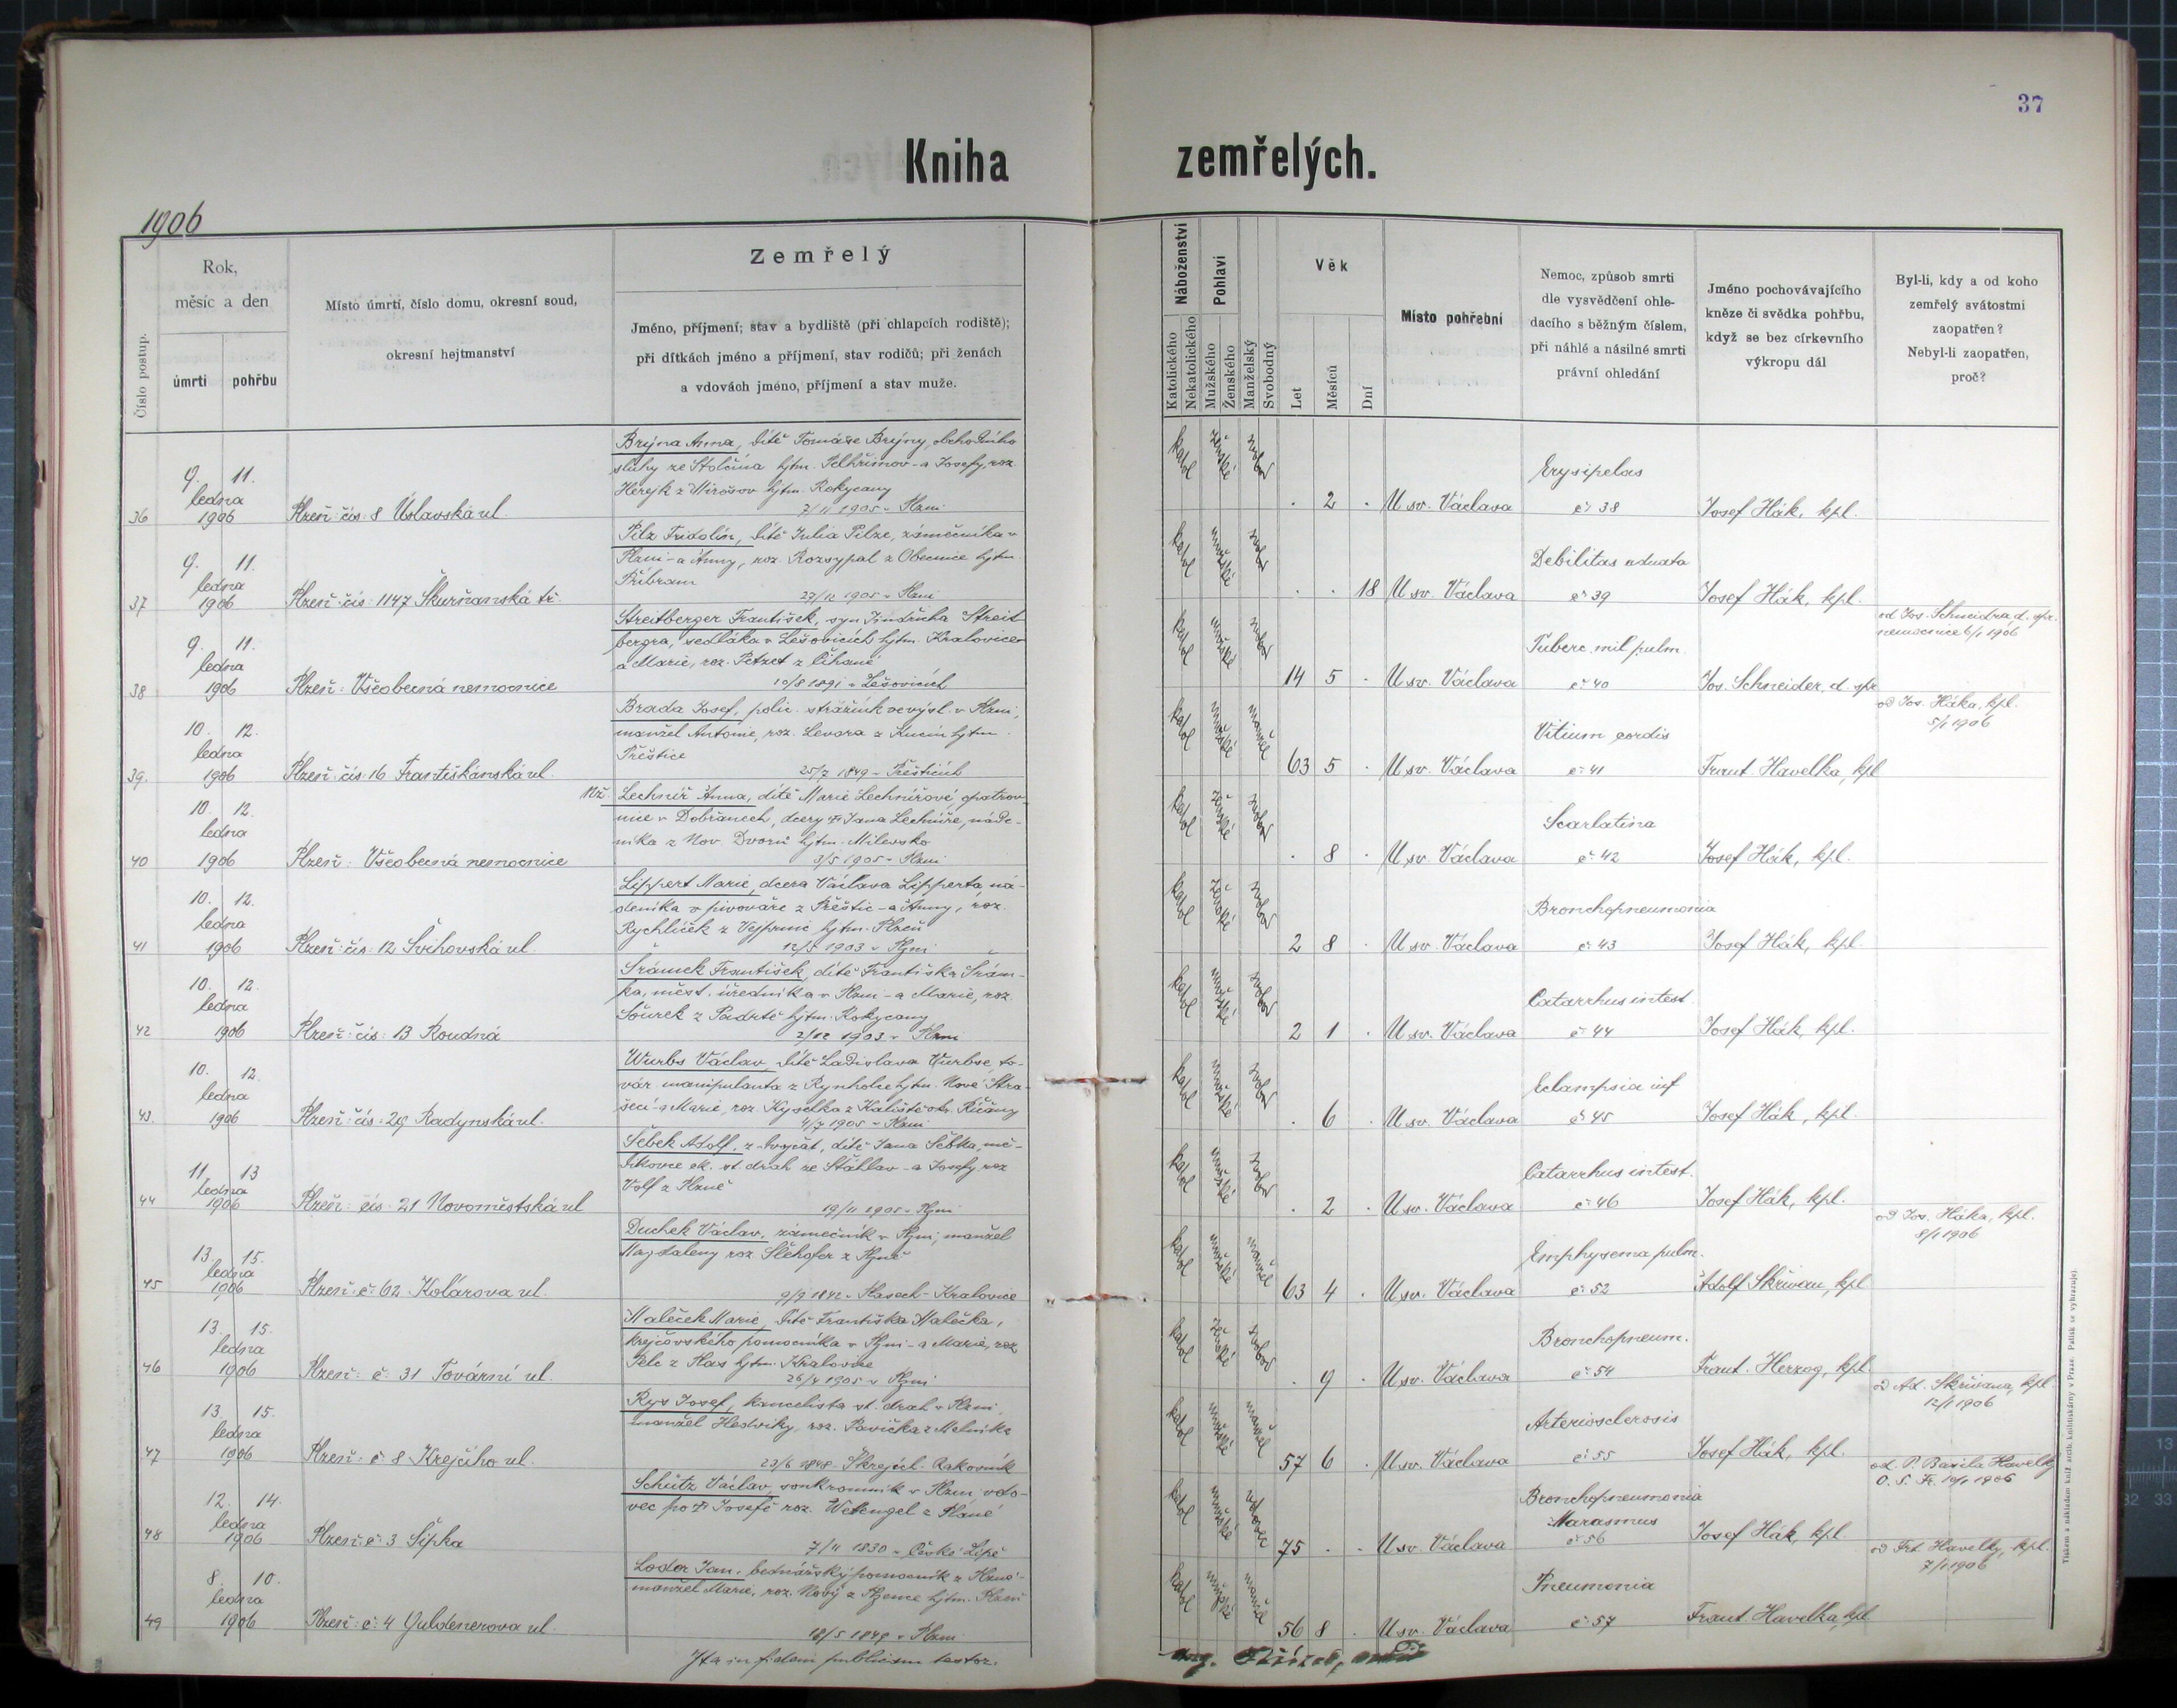 37
Kniha zemřelých.
1906
Číslo postup.
Rok,
měsíc a den
úmrtí
pohřbu
Místo úmrtí, číslo domu, okresní soud,
okresní hejtmanství
Zemřelý
Jméno, příjmení; stav a bydliště (při chlapcích rodiště);
při dítkách jméno a příjmení, stav rodičů; při ženách
a vdovách jméno, příjmení a stav muže.
Náboženství
Katolického
Nekatolického
Pohlaví
Mužského
Ženského
Manželský
Svobodný
Věk
Let
Měsíců
Dní
Místo pohřební
Nemoc, způsob smrti
dle vysvědčení ohle-
dacího s běžným číslem,
při náhlé a násilné smrti
právní ohledání
Jméno pochovávajícího
kněze či svědka pohřbu,
když se bez církevního
výkropu dál
Byl-li, kdy a od koho
zemřelý svátostmi
zaopatřen?
Nebyl-li zaopatřen,
proč?
36
9. 11.
ledna
1906
Plzeň: čís: 8 Úslavská ul.
Brejna Anna, dítě Tomáše Brejny, obchodního
sluhy ze Stolčína hjtm. Pelhřimov - a Josefy, roz.
Herejk z Mirošov hjtm. Rokycany
1905 v Plzni
katol ženské svobod
. 2 . U sv. Václava
Erysipelas
č: 38
Josef Hák, kpl.
37
9. 11.
ledna
1906
Plzeň: čís: 1147 Škurňanská tř.
Pilz Fridolín, dítě Julia Pilze, zámečníka v
Plzni - a Anny, roz. Rozsypal z Obecnice hjtm.
Příbram
23/12 1905 v Plzni
katol mužské svobod
. . 18 U sv. Václava
Debilitas
č: 39
Josef Hák, kpl.
38
9. 11.
ledna
1906
Plzeň: Všeobecná nemocnice
Streitberger František, syn Jindřicha Streit
bergra, sedláka v Lešovicích hjtm. Kralovice
a Marie, roz. Petzet z Číhané
10/8 1891 v Lešovicích
katol mužské svobod
14 5 . U sv. Václava
Tuberc. mil pulm.
č: 40
Jos. Schneider, d. spr.
od Jos. Schneidra d. spr.
nemocnice 6/1 1906
39.
10. 12.
ledna
1906
Plzeň: čís: 16 Františkánská ul.
Brada Josef, polic. strážník ve výsl. v Plzni,
manžel Antonie, roz. Levora z Kucín hjtm.
Přeštice
25/7 1849 v Přešticích
katol mužské manžel
63 5 . U sv. Václava
Vitium cordis
č: 41
Frant. Havelka, kpl
od Jos. Háka, kpl.
5/1 1906
40
10. 12.
ledna
1906
Plzeň: Všeobecná nemocnice
Nž. Lechníř Anna, dítě Marie Lechnířové, opatrov-
nice v Dobřanech, dcery † Jana Lechníře, náde-
níka z Nov. Dvorů hjtm. Milevsko
3/5 1905 v Plzni
katol ženské svobod
. 8 . U sv. Václava
Scarlatina
č: 42
Josef Hák, kpl.
41
10. 12.
ledna
1906
Plzeň: čís: 12 Švihovská ul.
Lippert Marie, dcera Václava Lipperta ná-
deníka v pivováře z Přeštic - a Anny, roz.
Rychlíček z Vejprnic hjtm. Plzeň
1903 v Plzni
katol ženské svobod
2 8 . U sv. Václava
Bronchopneumonia
č: 43
Josef Hák, kpl.
42
10. 12.
ledna
1906
Plzeň: čís: 13 Roudná
Šrámek František, dítě Františka Šrám-
ka, měst. úředníka v Plzni - a Marie, roz.
Šourek z Padrtě hjtm. Rokycany
2/12 1903 v Plzni
katol mužské svobod
2 1 . U sv. Václava
Catarrhus intest.
č: 44
Josef Hák, kpl.
43.
10. 12.
ledna
1906
Plzeň: čís: 29 Radynská ul.
Wurbs Václav, dítě Ladislava Wurbse, to-
vár. manipulanta z Rynholce hjtm. Nové Stra-
šecí - a Marie, roz. Kyselka z Kaliště okr. Říčany
4/7 1905 v Plzni
katol mužské svobod
. 6 . U sv. Václava
Eclampsia inf
č: 45
Josef Hák, kpl.
44
11. 13
ledna
1906
Plzeň: čís: 21 Novoměstská ul
Šebek Adolf, z dvojčat, dítě Jana Šebka, mě-
díkovce ck. st. drah ze Šťáhlav - a Josefy, roz
Volf z Plzně
19/11 1905 v Plzni
katol mužské svobod
. 2 . U sv. Václava
Catarrhus intest.
č: 46
Josef Hák, kpl.
45
13. 15.
ledna
1906
Plzeň: č: 62 Kolárova ul.
Duchek Václav, zámečník v Plzni, manžel
Magdaleny roz Šlehofer z Plzně
9/9 1842 v Plasech - Kralovice
katol mužské manžel
63 4 . U sv. Václava
Emphysema pulm.
č: 52
Adolf Skřivan, kpl
od Jos. Háka, kpl.
8/1 1906
46
13. 15.
ledna
1906
Plzeň: č: 31 Tovární ul.
Maleček Marie, dítě Františka Malečka,
krejčovského pomocníka v Plzni - a Marie, roz
Pelc z Plas hjtm. Kralovice
26/4 1905 v Plzni
katol ženské svobod
. 9 . U sv. Václava
Bronchopneum.
č: 54
Frant. Herzog, kpl.
47
13. 15.
ledna
1906
Plzeň: č: 8 Krejčího ul.
Rys Josef, kancelista st. drah v Plzni,
manžel Hedviky, roz. Pavička z Melníka
23/6 1848 Skrejch - Rakovník
katol mužské manžel
57 6 . U sv. Václava
Arteriosclerosis
č: 55
Josef Hák, kpl.
od Ad. Skřivana, kpl.
12/1 1906
48
12. 14.
ledna
1906
Plzeň: č: 3 Šipka
Schütz Václav, soukromník v Plzni vdo-
vec po † Josefě roz. Wetengel z Plané
7/11 1830 v České Lípě
katol mužské vdovec
75 . . U sv. Václava
Bronchopneumonia
Marasmus
č: 56
Josef Hák, kpl.
od P. Basila Havelky
O. S. Fr. 10/1 1906
49
8. 10.
ledna
1906
Plzeň: č: 4 Guldenerova ul.
Lodor Jan, bednářský pomocník z Plzně -
manžel Marie, roz. Nový z hjtm. Plzeň
18/5 1849 v Plzni
katol mužské manžel
56 8 . U sv. Václava
Pneumonia
č: 57
Frant. Havelka, kpl
od Frt. Havelky, kpl.
7/1 1906
Ita in fidem publicam testor.